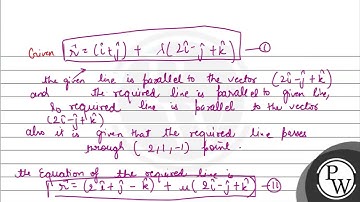 Given r⃗ = (î+ĵ) + λ(2î-ĵ+k̂) — ①
the given line is parallel to the vector (2î-ĵ+k̂)
and the required line is parallel to given line,
So required line is parallel to the vector
(2î-ĵ+k̂)
also it is given that the required line passes
through (2,1,-1) point.
the Equation of the required line is
r⃗ = (2î+ĵ-k̂) + μ(2î-ĵ+k̂) — ⑪
PW